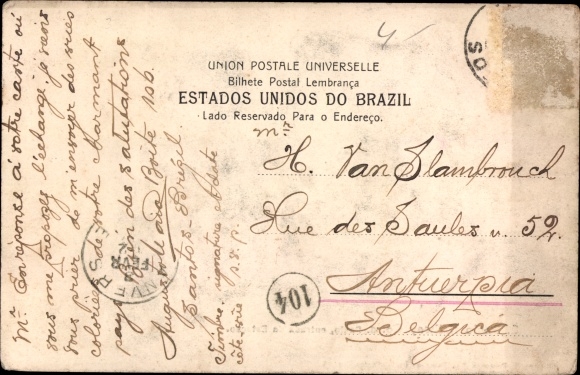 UNION POSTALE UNIVERSELLE
Bilhete Postal Lembrança
ESTADOS UNIDOS DO BRAZIL
Lado Reservado Para o Endereço.
Mr
H. Van Slambrouck
Rue des Saules n. 52.
Antuerpia
Belgica
104
ANVERS
FEVR
OS
Mr. En réponse à votre carte où
vous me proposez l'echange je viens
vous prier de m'envoyer des vues
coloriées de votre charmant
pays. Bien des salutations
Boite 106.
Santos Brezil
Timbre, signature et date
côte vue s. v. p.